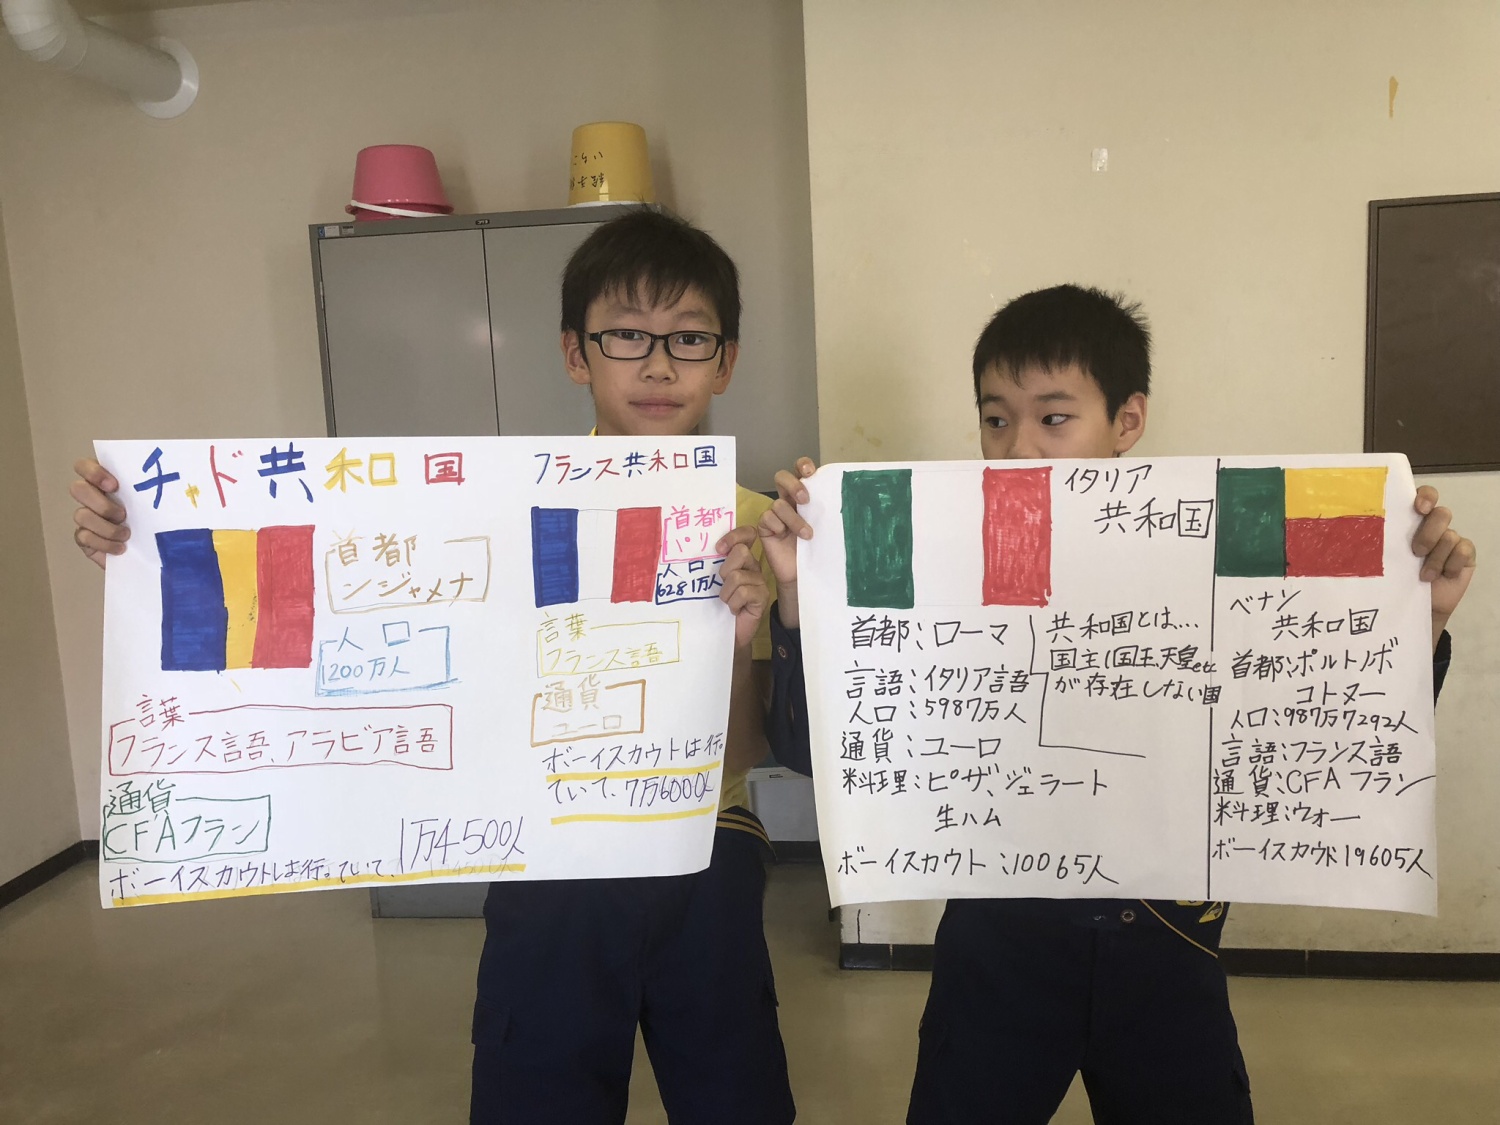 チャド共和国
首都
ンジャメナ
人口
1200万人
言葉
フランス語、アラビア語
通貨
CFAフラン
ボーイスカウトは行っていて、1万4500人
フランス共和国
首都
パリ
人口
6281万人
言葉
フランス語
通貨
ユーロ
ボーイスカウトは行っ
ていて、7万6000人
イタリア
共和国
首都:ローマ
言語:イタリア語
人口:5987万人
通貨:ユーロ
料理:ピザ、ジェラート
生ハム
ボーイスカウト:10065人
共和国とは…
国主(国王、天皇etc
が存在しない国
ベナン
共和国
首都:ポルトノボ
コトヌー
人口:987万7292人
言語:フランス語
通貨:CFAフラン
料理:ウォー
ボーイスカウト:19605人